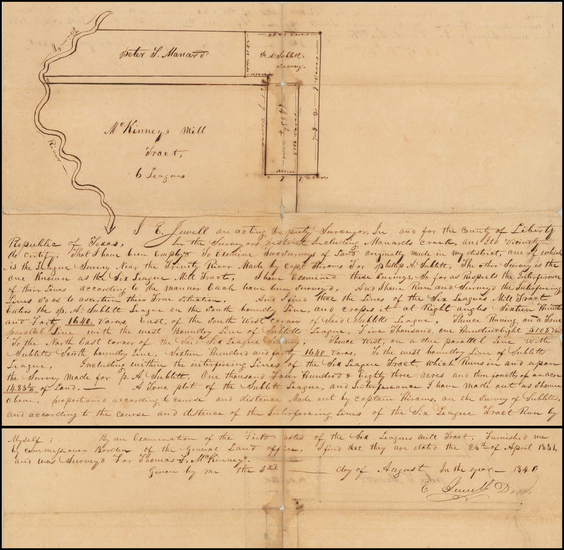 Peter J. Menard
P. A. Sublett
Survey
McKinneys Mill
Tract,
6 Leagues
River
I E. Jewell an acting Deputy Surveyor In and for the County of Liberty
Republic of Texas, In the Surveyors district including Menards creek, and its vicinity
do certify; That I have been employed To Examine two Surveys of Land originally made in my district, one of which
is the League Survey Near the Trinity River Made by Capt. Thrams For Philip A. Sublett. The other Survey is the
one Known as the Six League Mill Tract, I have Examined these Surveys So far as respects the Interference
of their Lines according to the manner Each have been Surveyed. And I have Run and Surveyed the interfering
Lines so as to ascertain their True situation. And I find that the Lines of the Six Leagues Mill Tract
Enters the P. A. Sublett League on the South boundry Line, and crosses it at Right angles Sixteen Hundred
and Forty 1640 varas East of the South West corner of said Sublett League. Thence Running on the
with the west Boundry Line of Sublett League, Five Thousand one Hundred & eight 5108
To the North East corner of the said Six League Survey. Thence West, on a due parallel Line With
Subletts South boundry Line, Sixteen Hundred and forty 1640 varas. To the west boundry Line of Sublett
League, Including within the interfering Lines of the Six League Tract Which Therein and upon
the Survey made for P. A. Sublett One thousand Four Hundred & Eighty three acres and two tenths of an acre
of Land. A True plat of the Sublett League, and Interference I have Made out as shown
above, proportioned according to course and distance Made out by captain Thrams, on the Survey of Sublett,
and according to the course and distance of the Interfering Lines of the Six League Tract Run by
Myself; By an Examination of the Field notes of the Six Leagues Mill Tract, Furnished me
by commissioner Borden of the General Land office. I find that they are dated the 28th of April 1831.
and was Surveyed For Thomas F. McKinney.
Given by me the 3rd day of August In the year 1840
E. Jewell D. S.